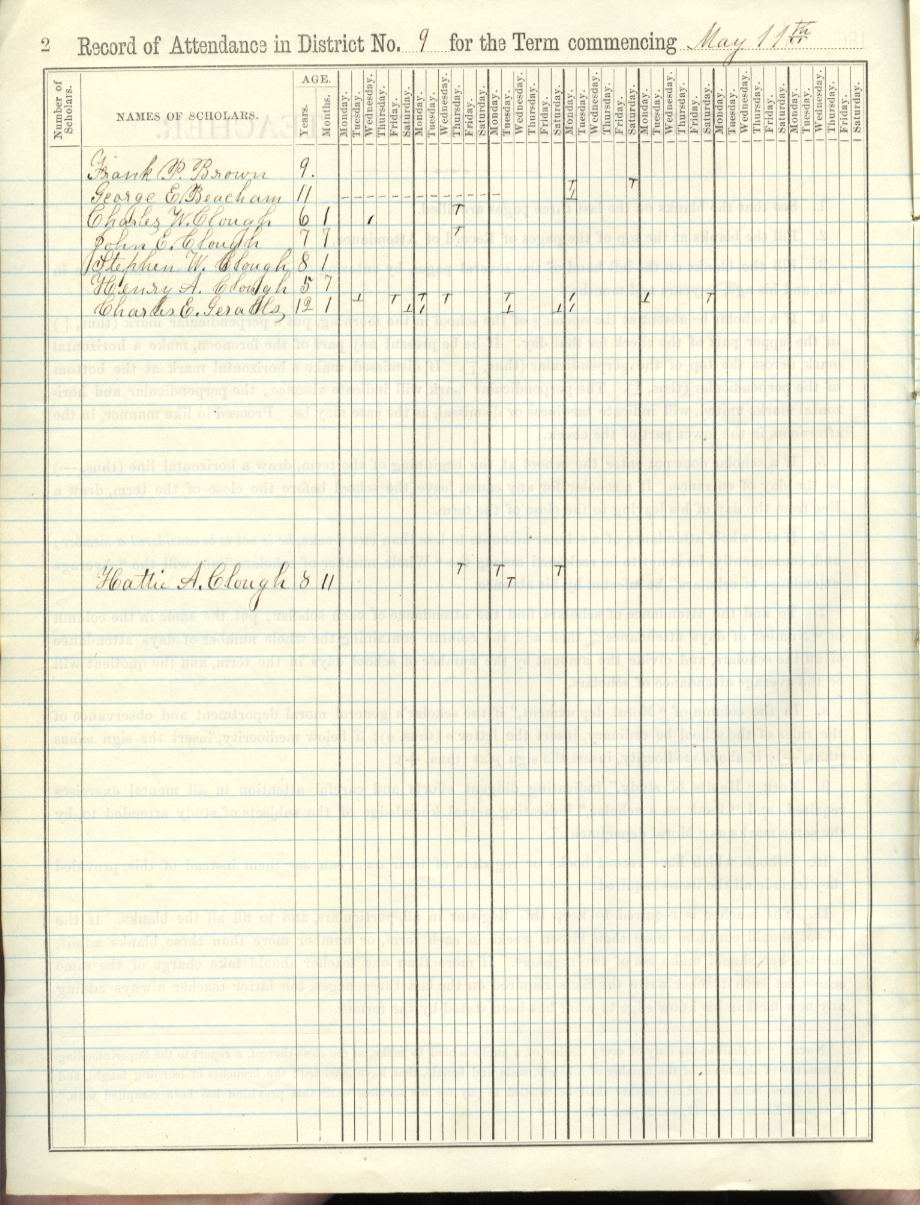 2 Record of Attendance in District No. 9 for the Term commencing May 11th
Number of Scholars.
NAMES OF SCHOLARS.
AGE.
Years. Months. Monday. Tuesday. Wednesday. Thursday. Friday. Saturday. Monday. Tuesday. Wednesday. Thursday. Friday. Saturday. Monday. Tuesday. Wednesday. Thursday. Friday. Saturday. Monday. Tuesday. Wednesday. Thursday. Friday. Saturday. Monday. Tuesday. Wednesday. Thursday. Friday. Saturday. Monday. Tuesday. Wednesday. Thursday. Friday. Saturday. Monday. Tuesday. Wednesday. Thursday. Friday. Saturday.
Frank P. Brown 9.
George E. Beacham 11
Charles W. Clough 6 1
John E. Clough 7 7
Stephen W. Clough 8 1
Henry A. Clough 5 7
Charles E. 12 1
Hattie A. Clough 8 11